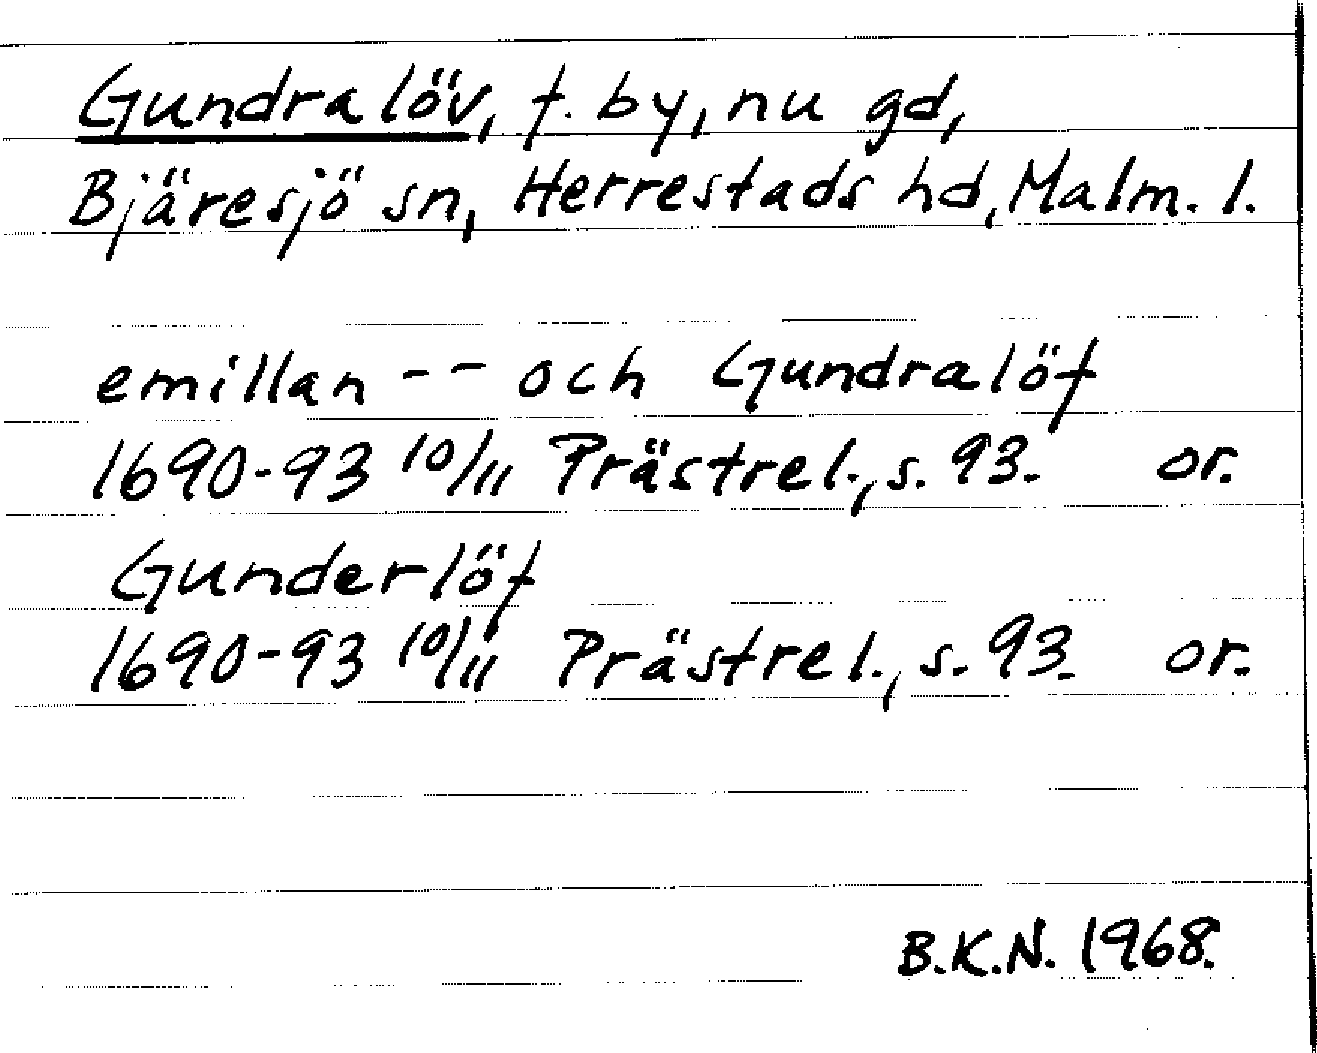 Gundralöv, f. by, nu gd,
Bjäresjö sn, Herrestads hd, Malm. l.
emillan -- och Gundralöf
1690-93 10/11 Prästrel., s. 93. or.
Gunderlöf
1690-93 10/11 Prästrel., s. 93. or.
B.K.N. 1968.